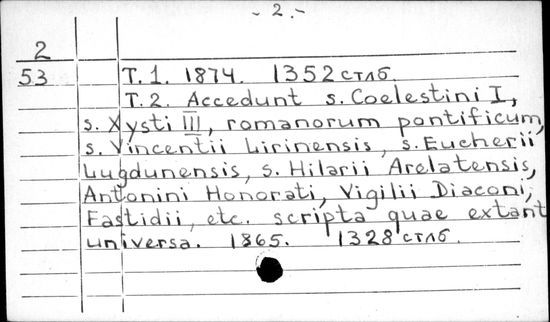 - 2. -
2
53
T. 1. 1874. 1352 стлб.
T. 2. Accedunt s. Coelestini I,
s. Xysti III, romanorum pontificum,
s. Vincentii Lirinensis, s. Eucherii
Lugdunensis, s. Hilarii Arelatensis,
Antonini Honorati, Vigilii Diaconi,
Fastidii, etc. scripta quae extant
universa. 1865. 1328 стлб.